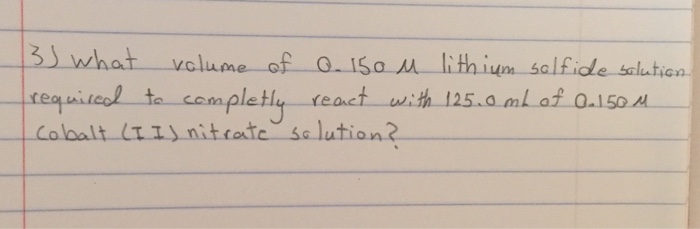 3) what volume of 0.150 M lithium solfide solution
required to completly react with 125.0 mL of 0.150 M
Cobalt (II) nitrate solution?